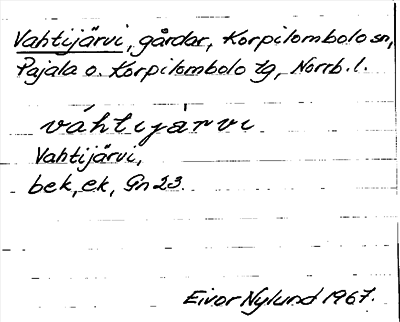 Vahtijärvi, gårdar, Korpilombolo sn,
Pajala o. Korpilombolo tg, Norrb. l.
váhtijạrvi
Vahtijärvi,
bek, ek, Gn 23.
Eivor Nylund 1967.